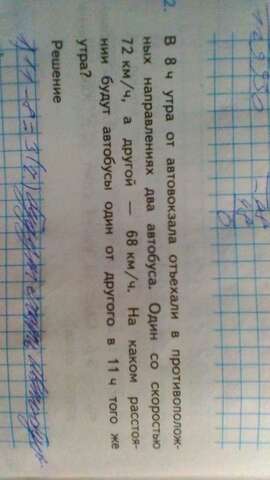 2.
В 8 ч утра от автовокзала отъехали в противополож-
ных направлениях два автобуса. Один со скоростью
72 км/ч, а другой — 68 км/ч. На каком расстоя-
нии будут автобусы один от другого в 11 ч того же
утра?
Решение
1) 11 - 8 = 3 (ч)